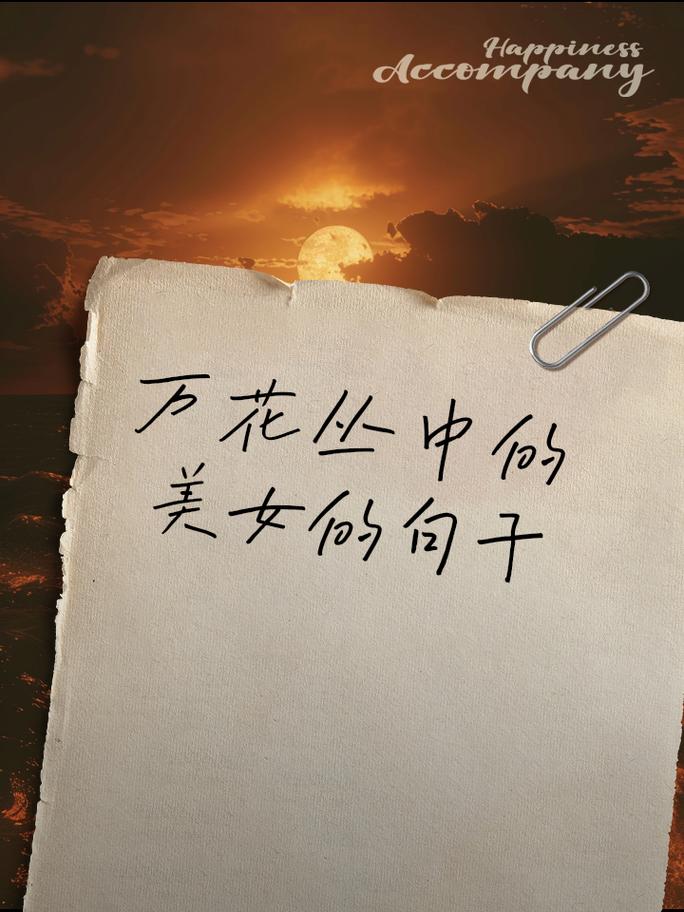 Happiness
Accompany
万花丛中的
美女的句子